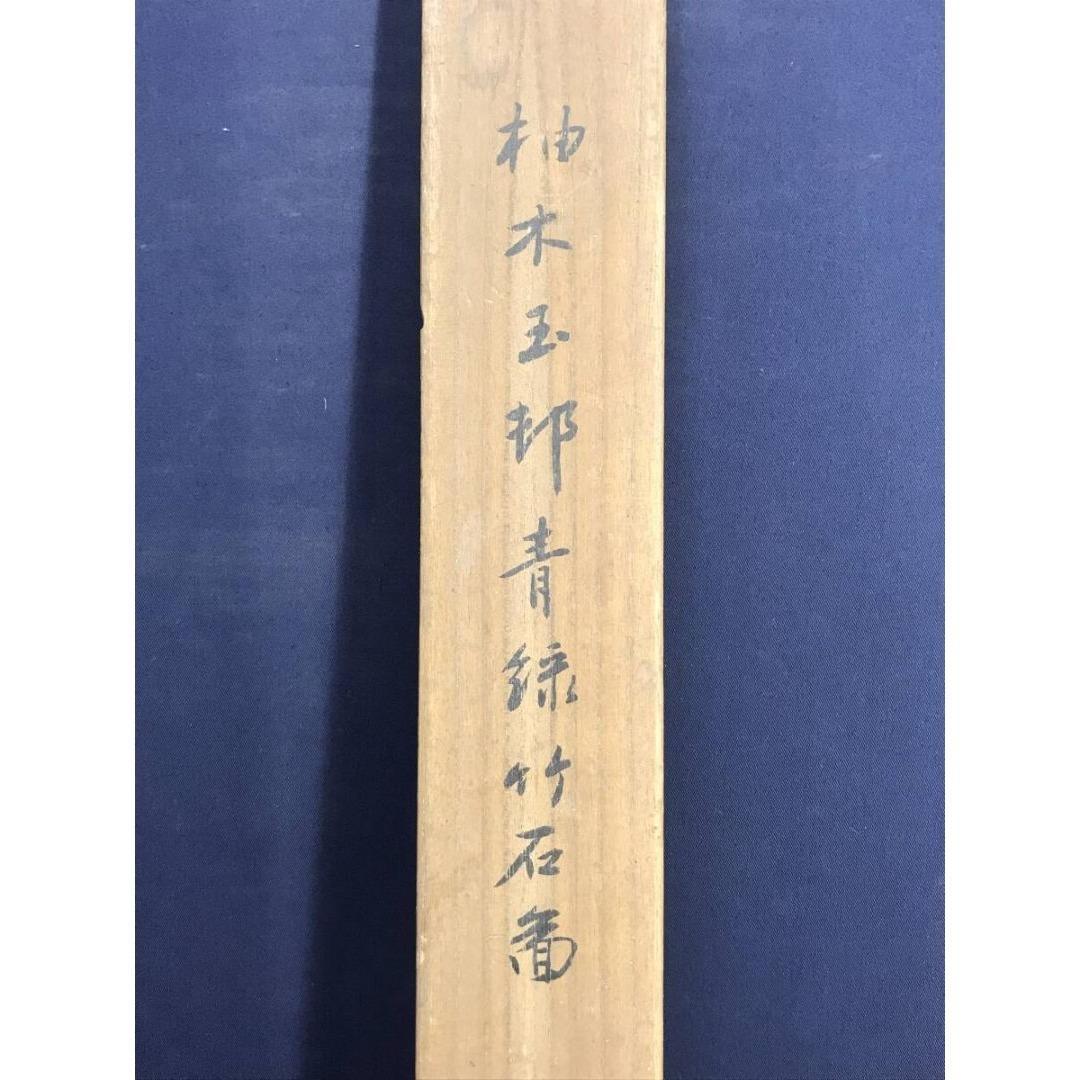 柚木玉邨青緑竹石啚